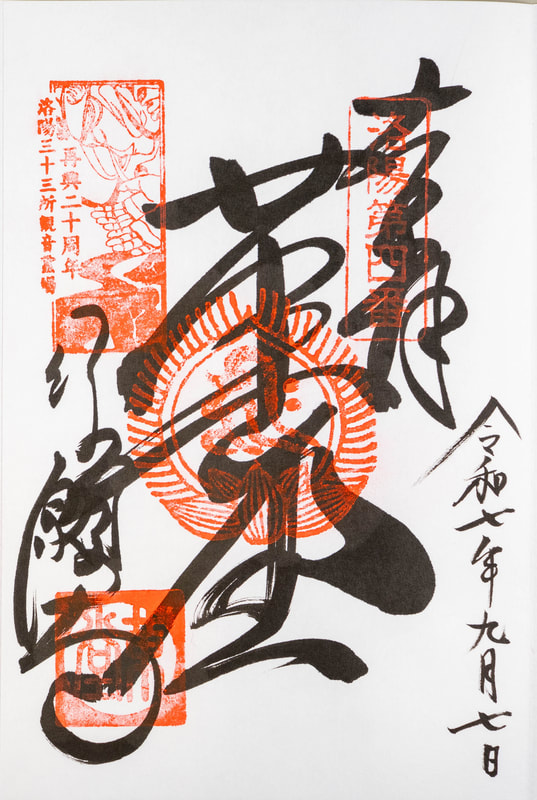 奉拝
洛陽第四番
令和七年九月七日
革堂
再興二十周年
洛陽三十三所観音霊場
行願寺